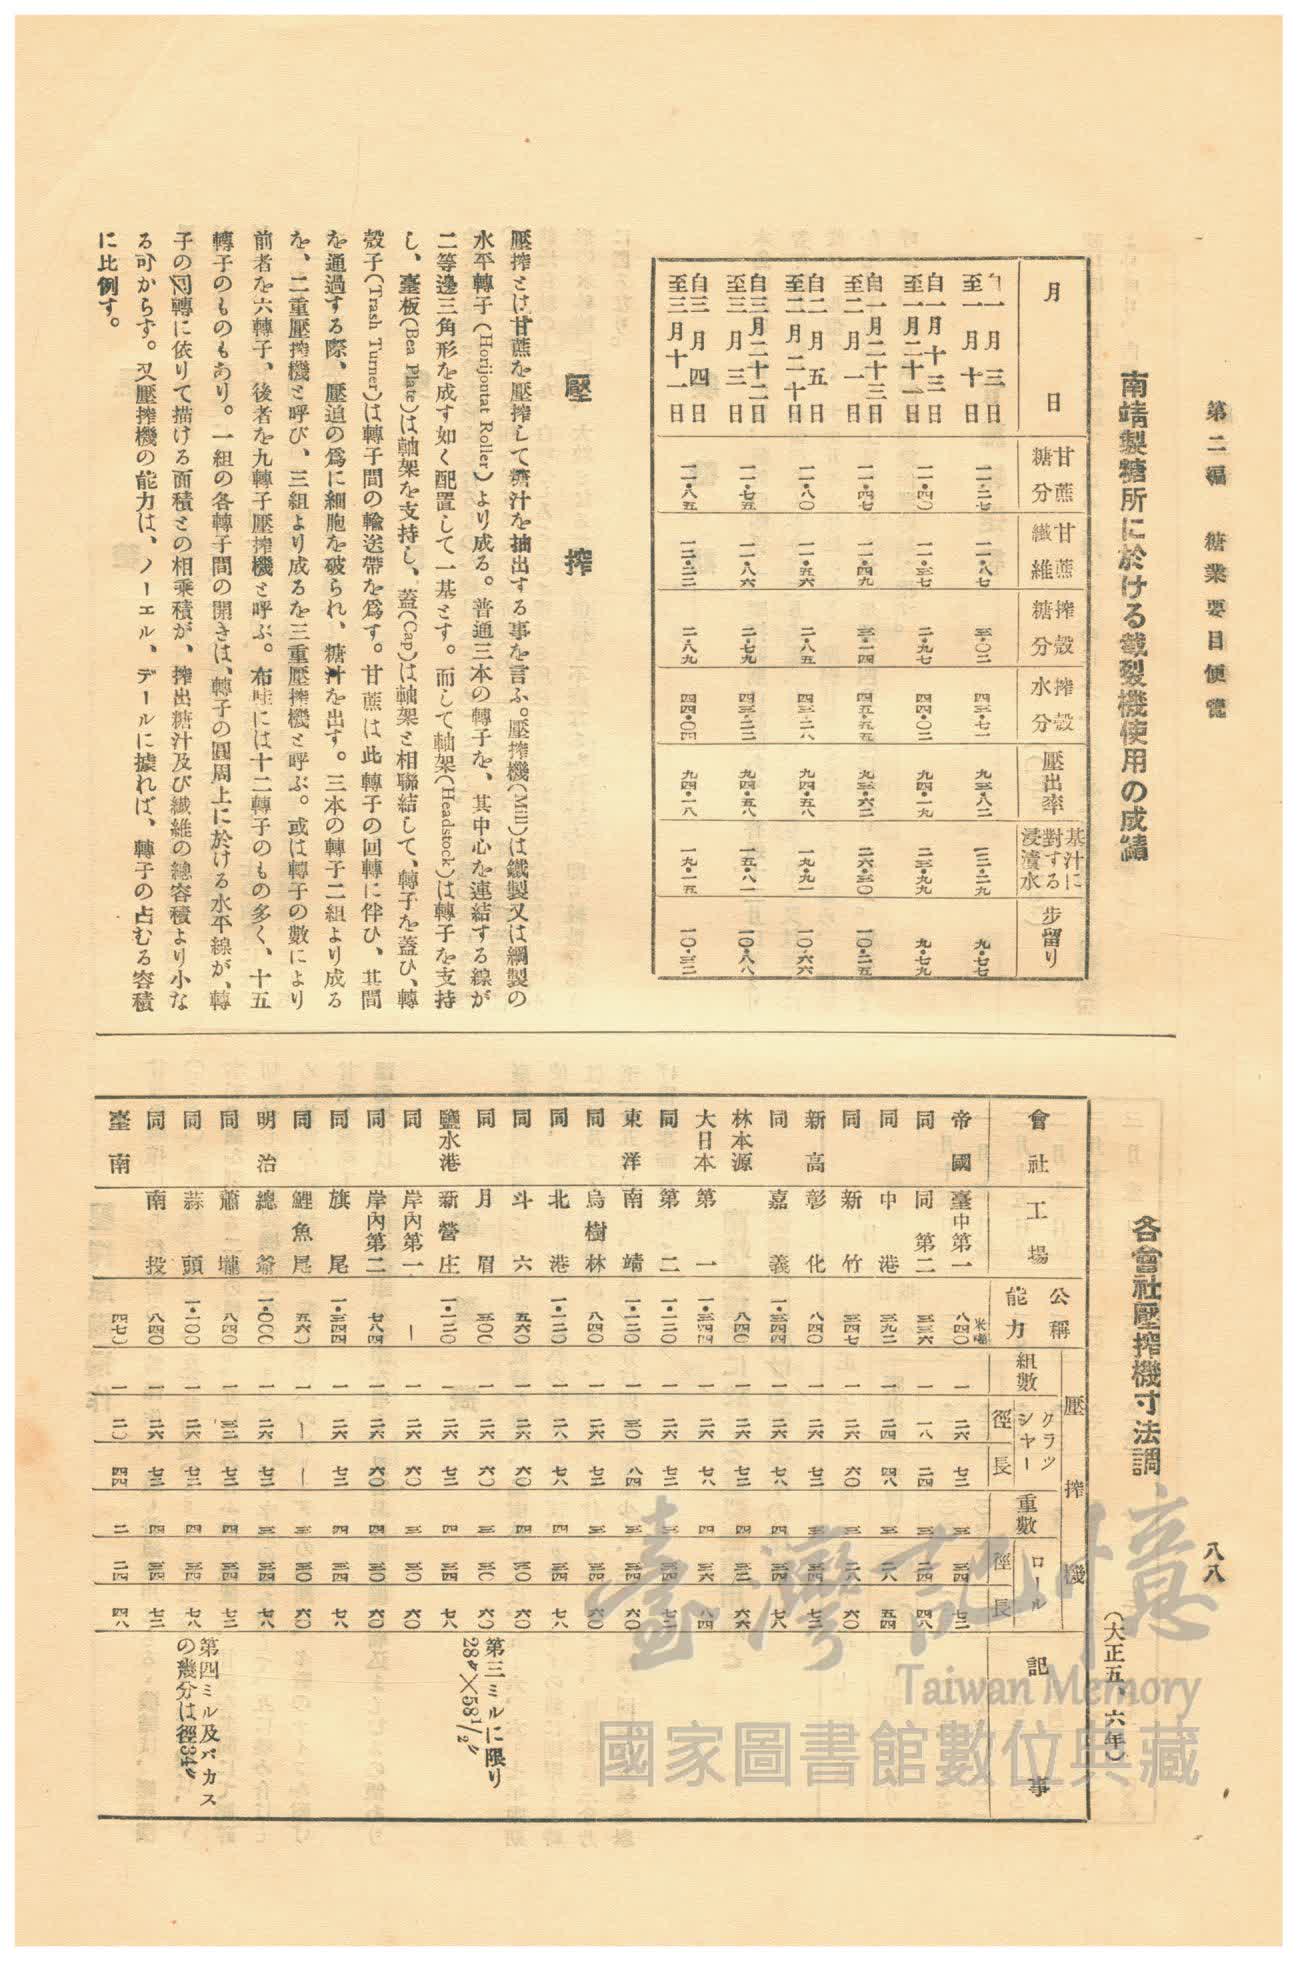 第二編　糖業要目便覽
八八
南靖製糖所に於ける截裂機使用の成績
月日　甘蔗糖分　甘蔗纖維　搾殼糖分　搾殼水分　壓出率　基汁に對する浸漬水　步留り
自一月三日至一月十日　一一・二七　一一・八七　三・〇二　四三・七一　九三・八二　一三・二九　九・七七
自一月十三日至一月二十一日　一一・四〇　一一・三七　二・九七　四四・〇二　九四・一九　二三・九九　九・七九
自一月二十三日至二月一日　一一・四七　一一・四九　三・一四　四五・五五　九三・六二　二六・三〇　一〇・二五
自二月五日至二月二十日　一一・八〇　一一・五六　二・八五　四三・二八　九四・五八　一九・九一　一〇・六六
自三月二十二日至三月三日　一一・七五　一一・八六　二・七九　四三・二二　九四・五八　一五・八一　一〇・八八
自三月四日至三月十一日　一一・八五　一二・二二　二・八九　四四・〇四　九四・一八　一九・一五　一〇・三二
壓搾
壓搾とは甘蔗を壓搾して糖汁を抽出する事を言ふ。壓搾機(Mill)は鐵製又は綱製の
水平轉子(Horijontat Roller)より成る。普通三本の轉子を、其中心を連結する線が
二等邊三角形を成す如く配置して一基とす。而して軸架(Headstock)は轉子を支持
し、臺板(Bea Plate)は軸架を支持し、蓋(Cap)は軸架と相聯結して、轉子を蓋ひ、轉
殼子(Trash Turner)は轉子間の輸送帶を爲す。甘蔗は此轉子の回轉に伴ひ、其間
を通過する際、壓迫の爲に細胞を破られ、糖汁を出す。三本の轉子二組より成る
を、二重壓搾機と呼び、三組より成るを三重壓搾機と呼ぶ。或は轉子の數により
前者を六轉子、後者を九轉子壓搾機と呼ぶ。布哇には十二轉子のもの多く、十五
轉子のものもあり。一組の各轉子間の開きは、轉子の圓周上に於ける水平線が、轉
子の回轉に依りて描ける面積との相乘積が、搾出糖汁及び纖維の總容積より小な
る可からす。又壓搾機の能力は、ノーエル、デールに據れば、轉子の占むる容積
に比例す。
各會社壓搾機寸法調
(大正五、六年)
會社　工場　公稱能力　壓搾機　組數　クラッシャー　徑　長　重數　ロール　徑　長　記事
帝國　臺中第一　八四〇米噸　一　二六　七二　三　三四　七二
同　同第二　三三六　一　一八　二四　三　二四　四八
同　中港　三九二　一　二四　四八　三　二八　五四
同　新竹　三四七　一　二六　六〇　三　二八　六〇
新高　彰化　八四〇　一　二六　七二　三　三四　七二
同　嘉義　一・三四四　一　二六　七八　四　三四　七八
林本源　八四〇　一　二六　七二　四　三二　六六
大日本　第一　一・三四四　一　二六　七八　四　三六　八四
同　第二　一・一二〇　一　二六　七二　三　三四　七二
東洋　南靖　一・一二〇　一　三〇　八四　三　三四　六〇
同　烏樹林　八四〇　一　二六　七二　三　三〇　六〇
同　北港　一・一二〇　一　二八　七八　四　三四　七八
同　斗六　五六〇　一　二六　六〇　四　三〇　六〇
同　月眉　五〇〇　一　二六　六〇　三　三〇　六〇　第三ミルに限り28″×58½″
鹽水港　新營庄　一・一二〇　一　二六　七二　四　三四　七八
同　岸內第一　—　一　二六　六〇　三　三〇　六〇
同　岸內第二　七八四　一　二六　六〇　四　三〇　六〇
同　旗尾　一・三四四　一　二六　七二　四　三四　七八
同　鯉魚尾　五六〇　一　—　—　三　三〇　六〇
明治　總爺　一・〇〇〇　一　二六　七二　三　三四　七八
同　蕭壠　八四〇　一　三二　七二　四　三四　七二
同　蒜頭　一・一〇〇　一　二六　七二　四　三四　七八　第四ミル及バカスの幾分は徑34″
同　南投　八四〇　一　二六　七二　四　三四　七二
臺南　四七〇　一　二〇　四四　二　二四　四八
臺灣記憶
Taiwan Memory
國家圖書館數位典藏